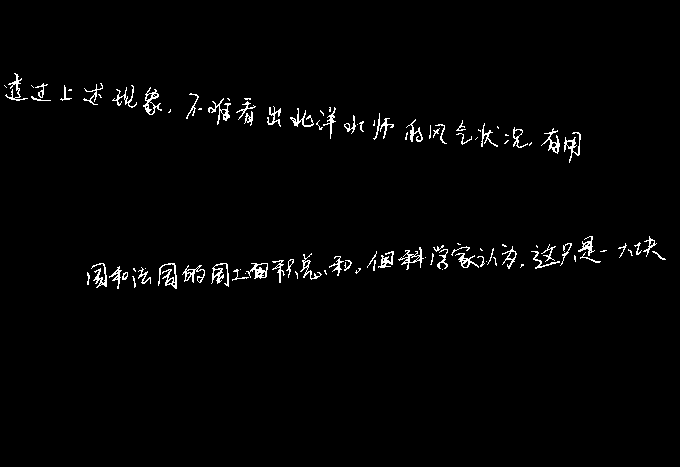 透过上述现象，不难看出北洋水师的风气状况，有用
国和法国的国土面积总和。但科学家认为，这只是一大块